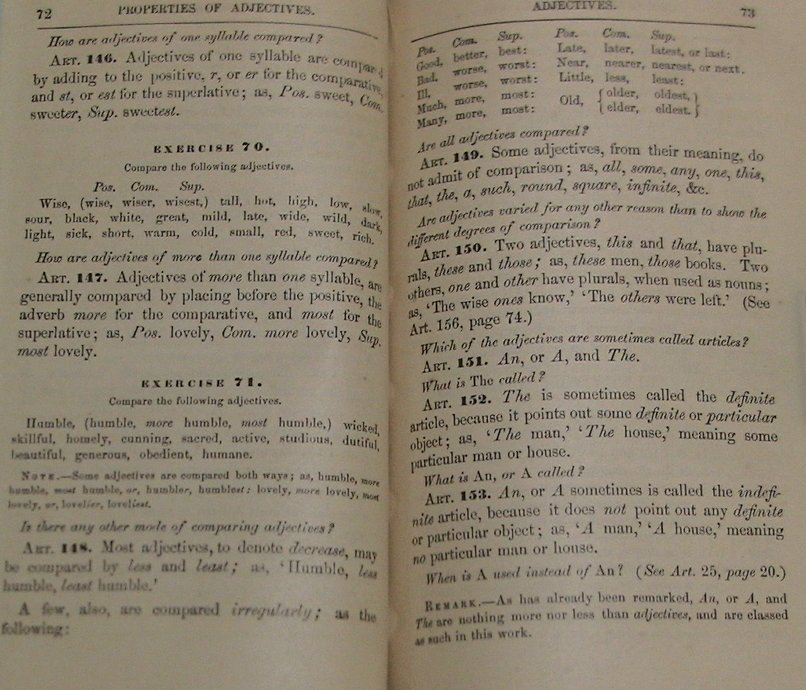 72 PROPERTIES OF ADJECTIVES.
How are adjectives of one syllable compared?
ART. 146. Adjectives of one syllable are compared
by adding to the positive, r, or er for the comparative,
and st, or est for the superlative; as, Pos. sweet, Com.
sweeter, Sup. sweetest.
EXERCISE 70.
Compare the following adjectives.
Pos. Com. Sup.
Wise, (wise, wiser, wisest,) tall, hot, high, low, slow,
sour, black, white, great, mild, late, wide, wild, dark,
light, sick, short, warm, cold, small, red, sweet, rich.
How are adjectives of more than one syllable compared?
ART. 147. Adjectives of more than one syllable, are
generally compared by placing before the positive, the
adverb more for the comparative, and most for the
superlative; as, Pos. lovely, Com. more lovely, Sup.
most lovely.
EXERCISE 71.
Compare the following adjectives.
Humble, (humble, more humble, most humble,) wicked,
skillful, homely, cunning, sacred, active, studious, dutiful,
beautiful, generous, obedient, humane.
NOTE.—Some adjectives are compared both ways; as, humble, more
humble, most humble, or, humbler, humblest: lovely, more lovely, most
lovely, or, lovelier, loveliest.
Is there any other mode of comparing adjectives?
ART. 148. Most adjectives, to denote decrease, may
be compared by less and least; as, 'Humble, less
humble, least humble.'
A few, also, are compared irregularly; as the
following:
ADJECTIVES. 73
Pos. Com. Sup. Pos. Com. Sup.
Good, better, best: Late, later, latest, or last:
Bad, worse, worst: Near, nearer, nearest, or next.
Ill, worse, worst: Little, less, least:
Much, more, most: Old, { older, oldest, }
Many, more, most: { elder, eldest. }
Are all adjectives compared?
ART. 149. Some adjectives, from their meaning, do
not admit of comparison; as, all, some, any, one, this,
that, the, a, such, round, square, infinite, &c.
Are adjectives varied for any other reason than to show the
different degrees of comparison?
ART. 150. Two adjectives, this and that, have plu-
rals, these and those; as, these men, those books. Two
others, one and other have plurals, when used as nouns;
as, 'The wise ones know,' 'The others were left.' (See
Art. 156, page 74.)
Which of the adjectives are sometimes called articles?
ART. 151. An, or A, and The.
What is The called?
ART. 152. The is sometimes called the definite
article, because it points out some definite or particular
object; as, 'The man,' 'The house,' meaning some
particular man or house.
What is An, or A called?
ART. 153. An, or A sometimes is called the indefi-
nite article, because it does not point out any definite
or particular object; as, 'A man,' 'A house,' meaning
no particular man or house.
When is A used instead of An? (See Art. 25, page 20.)
REMARK.—As has already been remarked, An, or A, and
The are nothing more nor less than adjectives, and are classed
as such in this work.